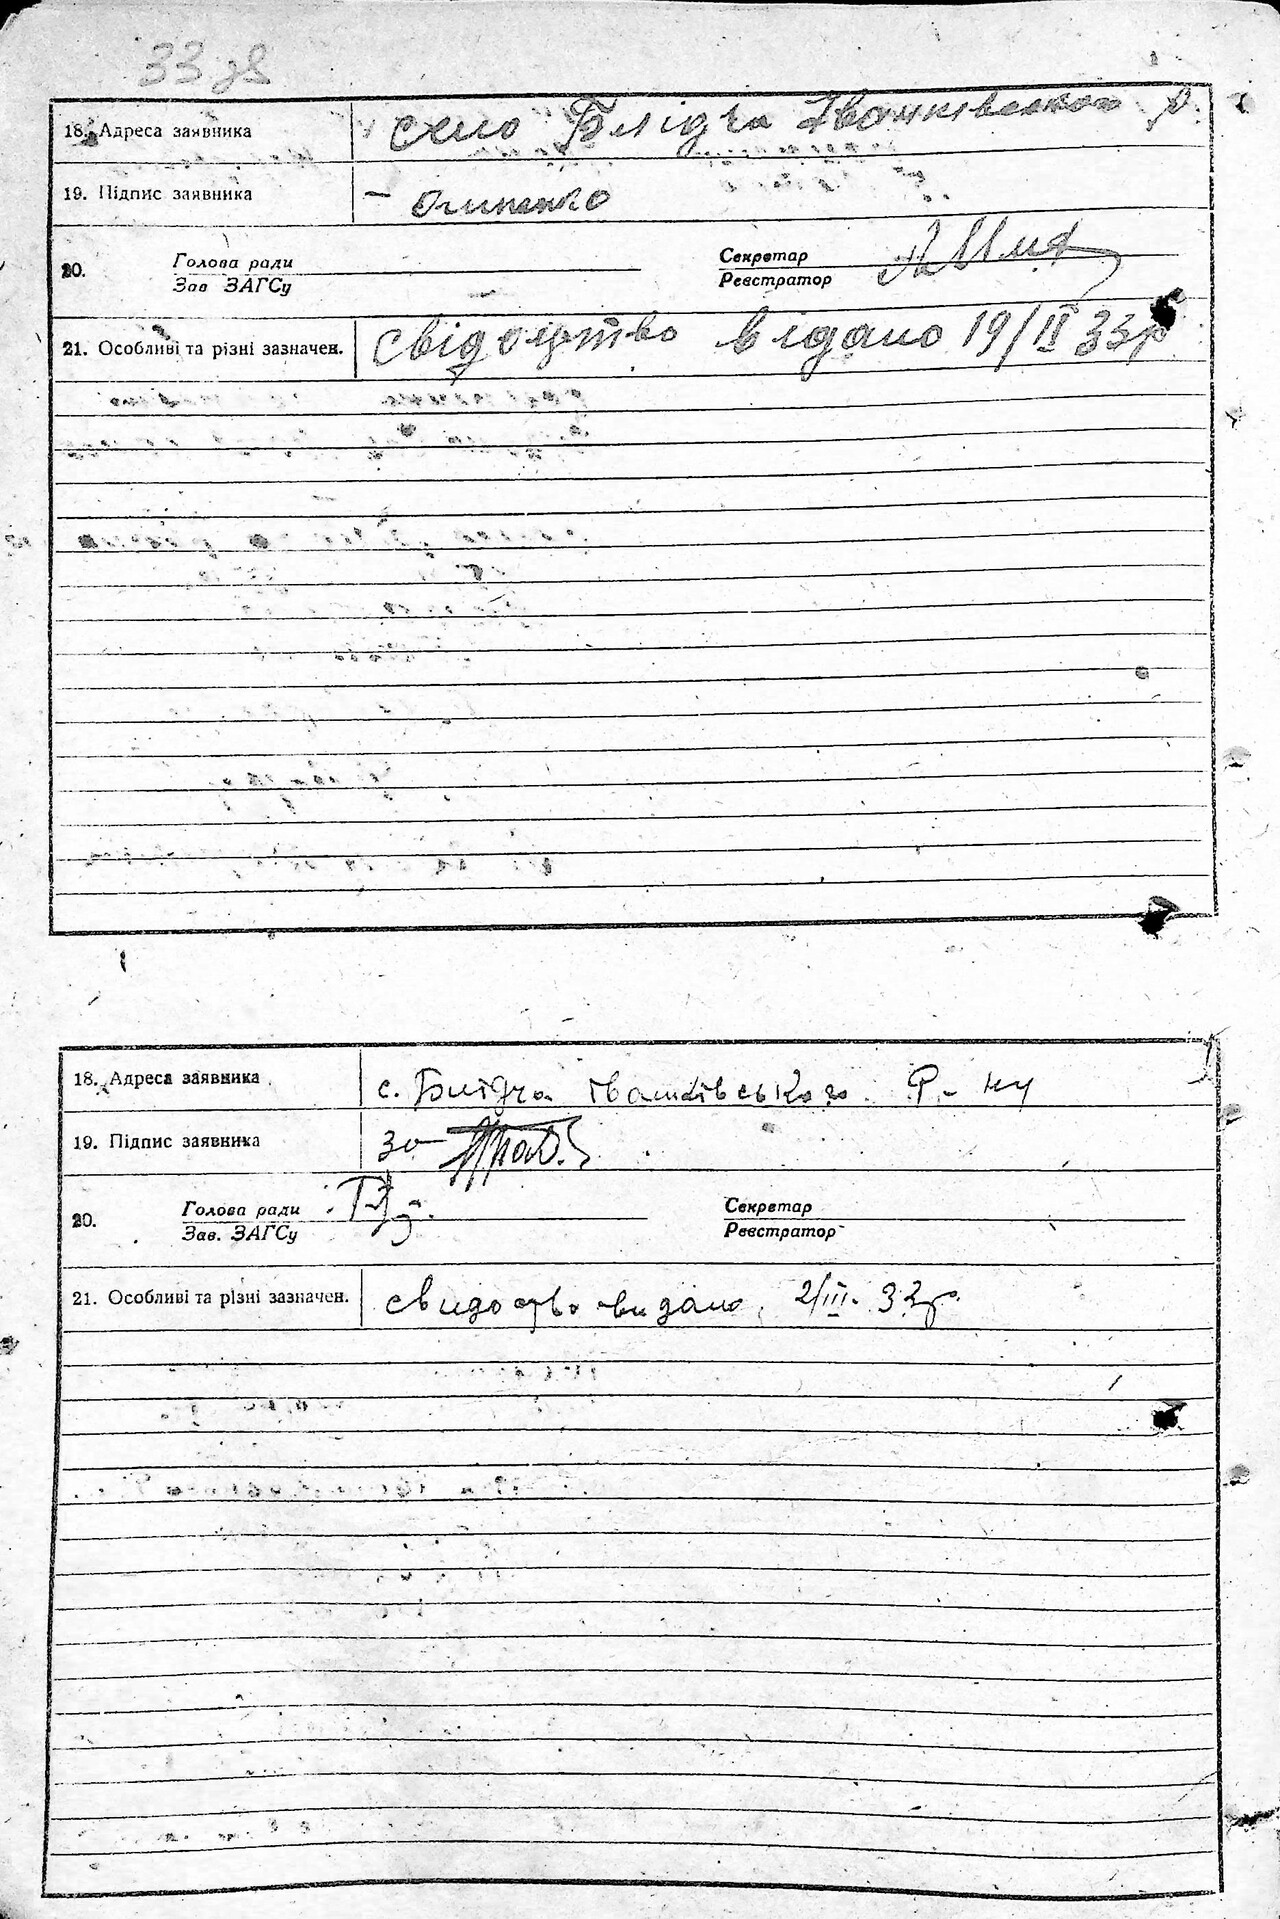 33 зв
18. Адреса заявника село Блідча Іванківського р.
19. Підпис заявника – Олипенко
20. Голова ради Секретар
Зав ЗАГСу Реєстратор
21. Особливі та різні зазначен. свідоцтво видано 19/II 33р
18. Адреса заявника с. Блідча Іванківського Р-ну
19. Підпис заявника за
20. Голова ради Секретар
Зав. ЗАГСу Реєстратор
21. Особливі та різні зазначен. свидоство видано 2/III. 33р.